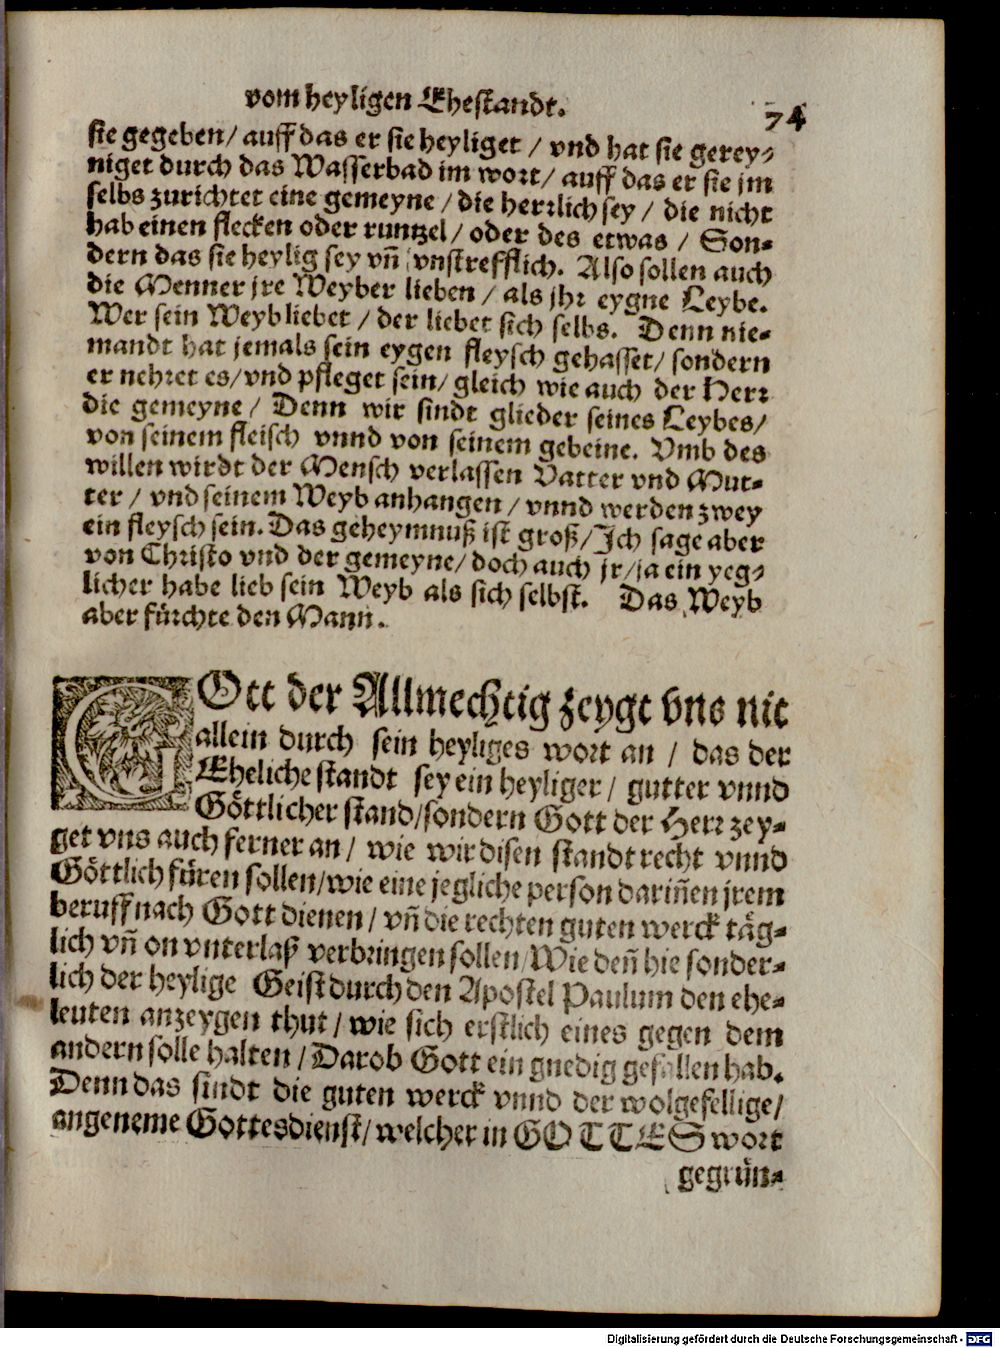 vom heyligen Ehestandt.
74
sie gegeben/ auff das er sie heyliget / vnd hat sie gerey-
niget durch das Wasserbad im wort/ auff das er sie jm
selbs zurichtet eine gemeyne / die herrlich sey / die nicht
hab einen flecken oder runtzel / oder des etwas / Son-
dern das sie heylig sey vñ vnstrefflich. Also sollen auch
die Menner jre Weyber lieben / als jhr eygne Leybe.
Wer sein Weyb liebet / der liebet sich selbs. Denn nie-
mandt hat jemals sein eygen fleysch gehasset/ sondern
er nehret es/ vnd pfleget sein/ gleich wie auch der Herr
die gemeyne / Denn wir sindt glieder seines Leybes/
von seinem fleisch vnnd von seinem gebeine. Vmb des
willen wirdt der Mensch verlassen Vatter vnd Mut-
ter / vnd seinem Weyb anhangen / vnnd werden zwey
ein fleysch sein. Das geheymnuß ist groß/ Ich sage aber
von Christo vnd der gemeyne/ doch auch jr/ ja ein yeg-
licher habe lieb sein Weyb als sich selbst. Das Weyb
aber fürchte den Mann.
GOtt der Allmechtig zeygt vns nit
allein durch sein heyliges wort an / das der
Eheliche standt sey ein heyliger / gutter vnnd
Göttlicher stand/ sondern Gott der Herr zey-
get vns auch ferner an / wie wir disen standt recht vnnd
Göttlich füren sollen/ wie eine jegliche person dariñen jrem
beruff nach Gott dienen / vñ die rechten guten werck täg-
lich vñ on vnterlaß verbringen sollen/ Wie deñ hie sonder-
lich der heylige Geist durch den Apostel Paulum den ehe-
leuten anzeygen thut / wie sich erstlich eines gegen dem
andern solle halten / Darob Gott ein gnedig gefallen hab.
Denn das sindt die guten werck vnnd der wolgefellige/
angeneme Gottesdienst/ welcher in GOTTES wort
gegrün-
Digitalisierung gefördert durch die Deutsche Forschungsgemeinschaft - DFG